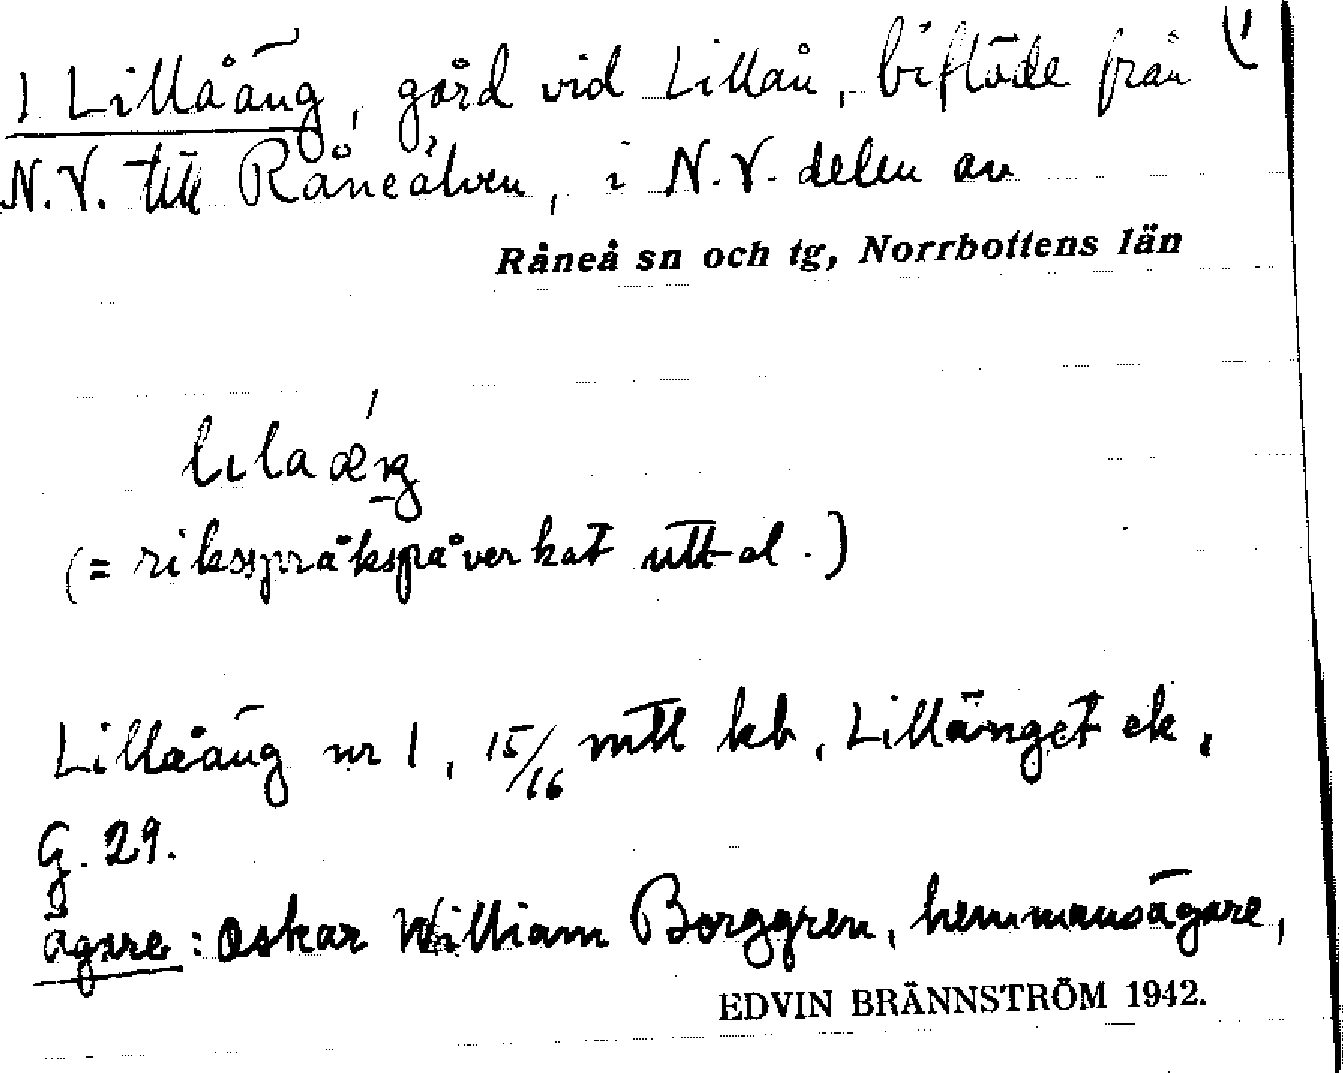 1 Lillåäng, gård vid Lillån, biflöde från
N.V. till Råneälven, i N.V. delen av
Råneå sn och tg, Norrbottens län
lılaæŋ
(= riksspråkspåverkat uttal.)
Lillåäng nr 1, 15/16 mtl kb, Lillänget ek,
G. 29.
Ägare: Oskar William Borggren, hemmansägare,
EDVIN BRÄNNSTRÖM 1942.